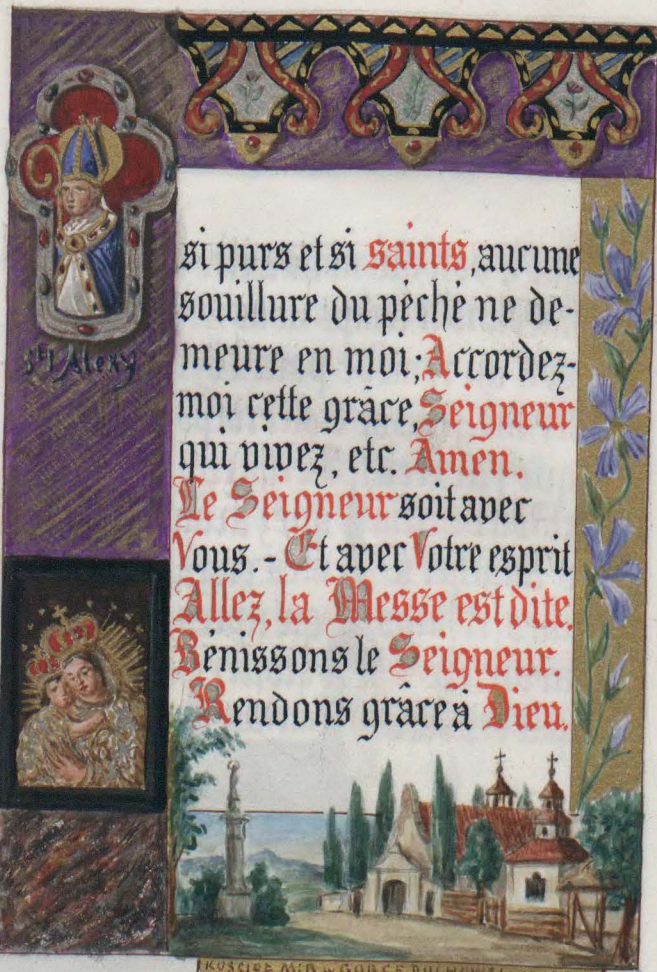 si purs et si saints, aucune
souillure du pèché ne de-
meure en moi; Accordez-
moi cette grâce, Seigneur
qui vivez, etc. Amen.
Le Seigneur soit avec
Vous. - Et avec Votre esprit
Allez, la Messe est dite.
Bénissons le Seigneur.
Rendons grâce à Dieu.
St Alexy